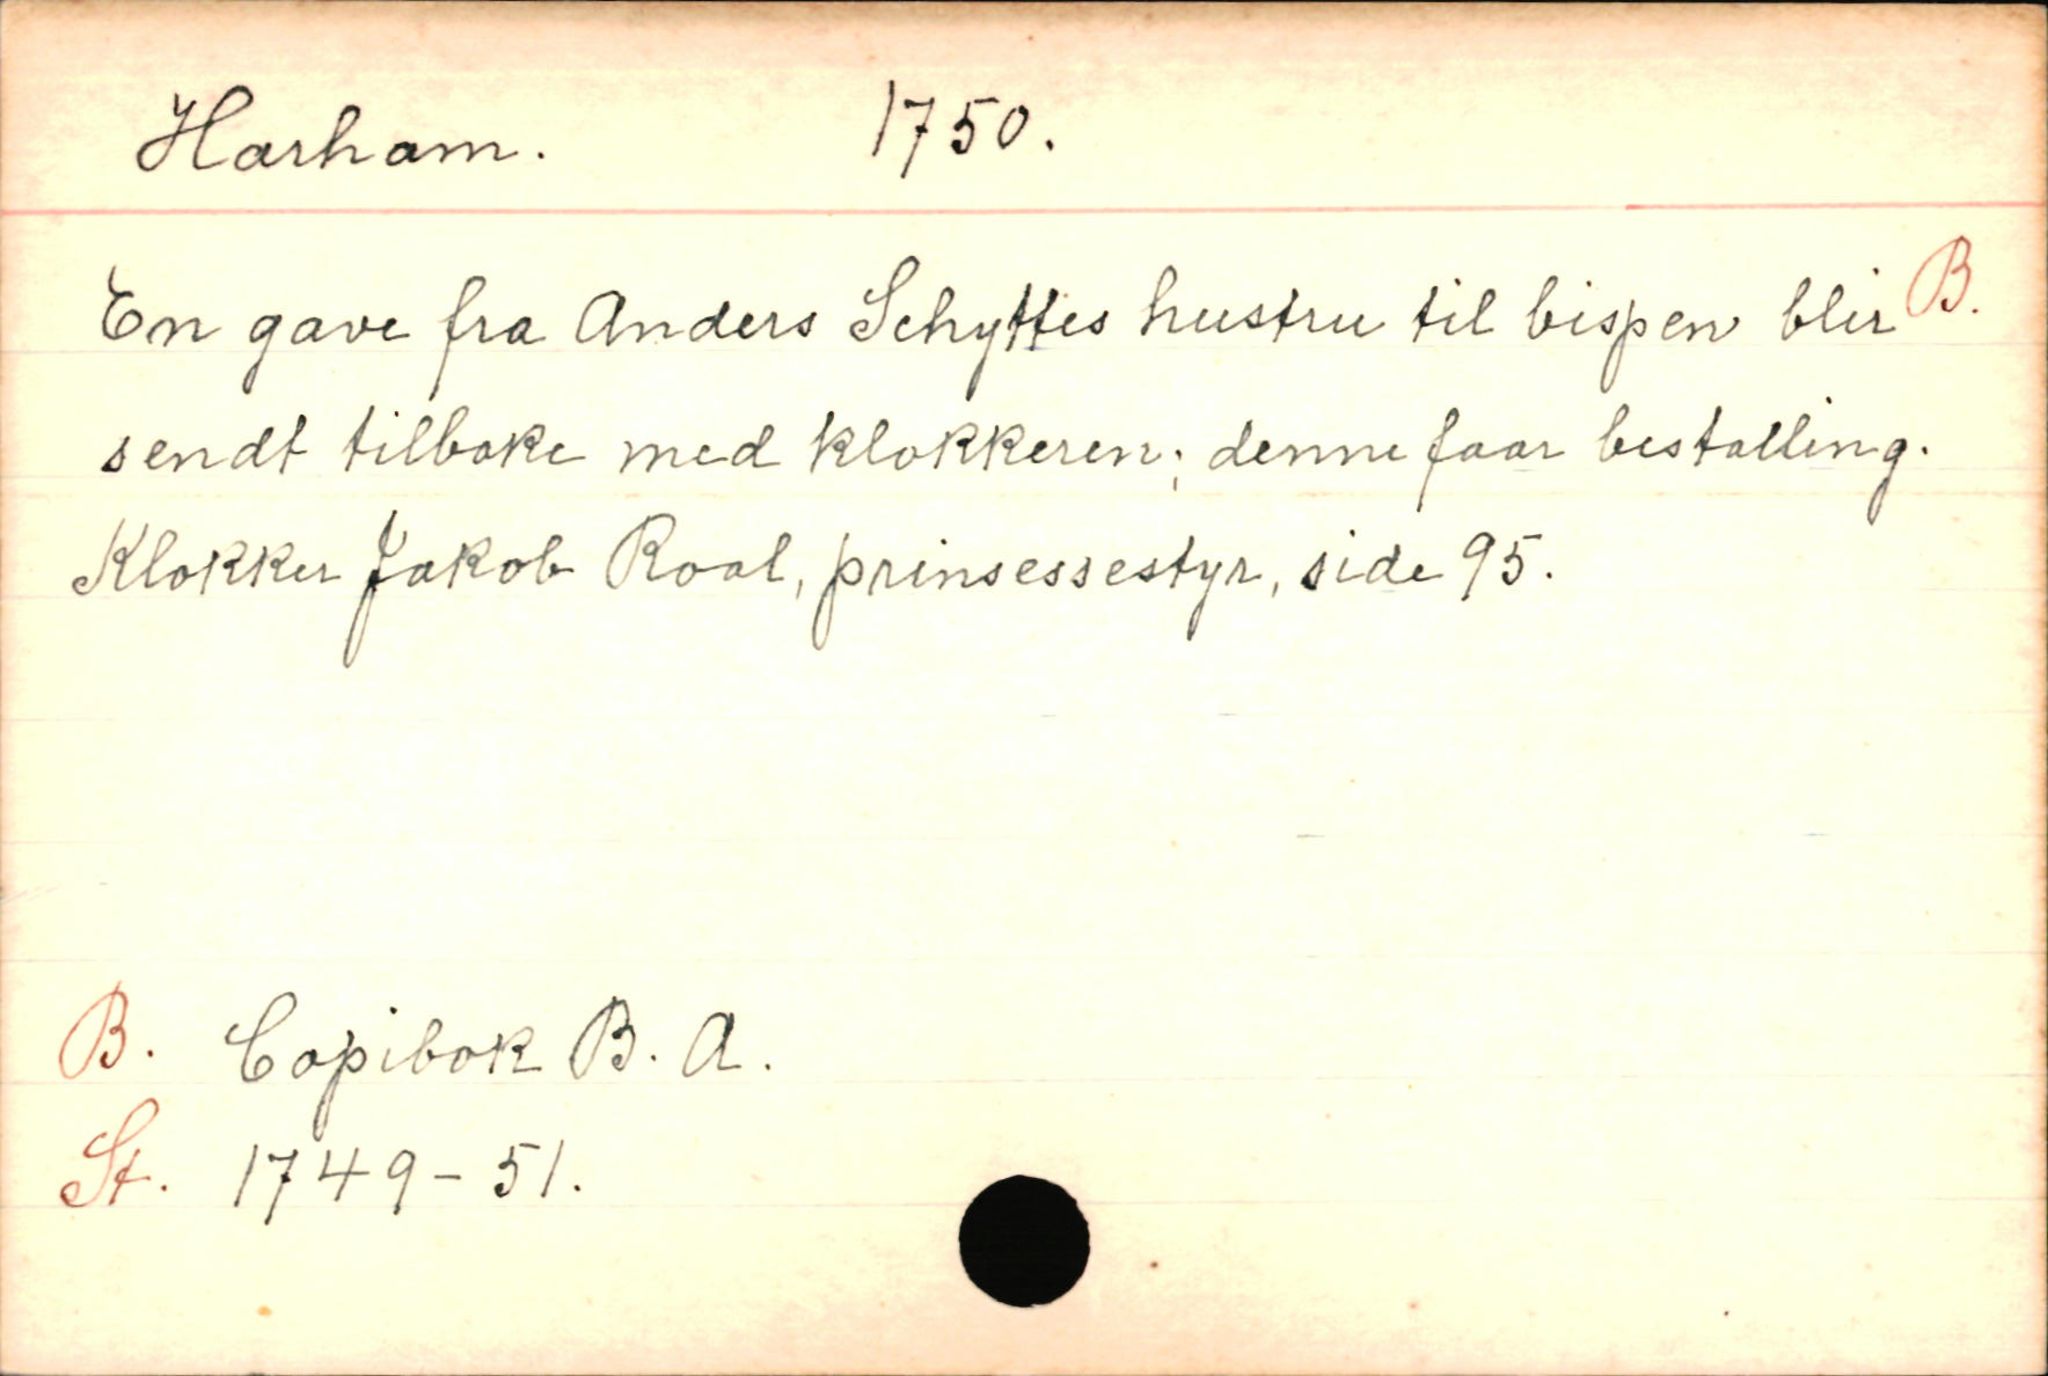 Harham. 1750.
En gave fra Anders Schyttes hustru til bispen blir B.
sendt tilbake med klokkeren; denne faar bestalling.
Klokker Jakob Roal, prinsessestyr, side 95.
B. Copibok B. A.
St. 1749-51.